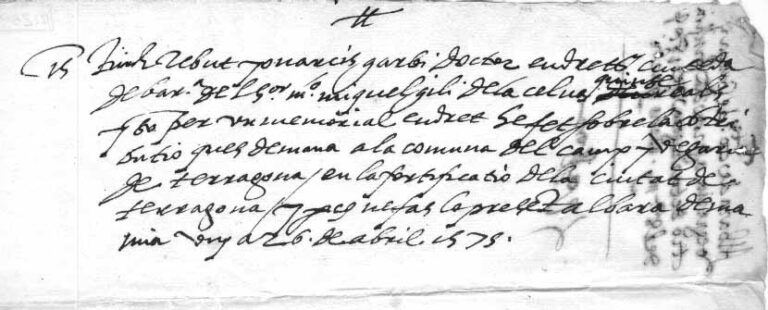 tt
Tinch rebut yo narcis garbi doctor en drets ciutada
de bar.ª del Sor. mº miquel gili de la celva quinse reals
y so per un memorial en dret he fet sobre la contri
butio ques demana a la comuna del camp y
de terragona / en la fortificatio de la ciutat de
terragona / y per q ne fas lo present albara de ma
mia vuy a 26. de abril 1575.